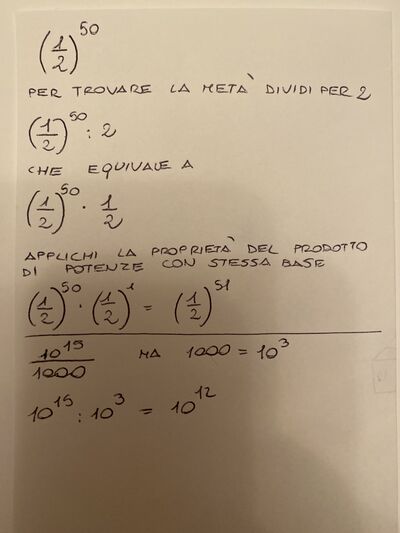 (1/2)^50
PER TROVARE LA METÀ DIVIDI PER 2
(1/2)^50 : 2
CHE EQUIVALE A
(1/2)^50 · 1/2
APPLICHI LA PROPRIETÀ DEL PRODOTTO
DI POTENZE CON STESSA BASE
(1/2)^50 · (1/2)^1 = (1/2)^51
10^15/1000 MA 1000 = 10^3
10^15 : 10^3 = 10^12